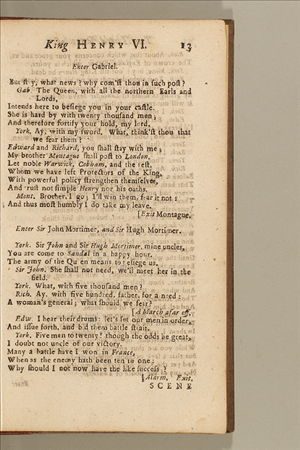 King HENRY VI. 13
Enter Gabriel.
But stay, what news? why com'st thou in such post?
Gab. The Queen, with all the northern Earls and
Lords,
Intends here to besiege you in your castle.
She is hard by with twenty thousand men;
And therefore fortify your hold, my lord,
York. Ay, with my sword. What, think'st thou that
we fear them?
Edward and Richard, you shall stay with me;
My brother Montague shall post to London.
Let noble Warwick, Cobham, and the rest,
Whom we have left Protectors of the King,
With powerful policy strengthen themselves,
And trust not simple Henry nor his oaths.
Mont. Brother, I go; I'd win them, fear it not:
And thus most humbly I do take my leave.
[Exit Montague.
Enter Sir John Mortimer, and Sir Hugh Mortimer.
York. Sir John and Sir Hugh Mortimer, mine uncles,
You are come to Sandal in a happy hour.
The army of the Queen means to besiege us.
Sir John. She shall not need, we'll meet her in the
field.
York. What, with five thousand men?
Rich. Ay, with five hundred, father, for a need:
A woman's general; what should we fear?
[A March afar off.
Edw. I hear their drums: let's set our men in order,
And issue forth, and bid them battle strait.
York. Five men to twenty! though the odds be great,
I doubt not uncle of our victory.
Many a battle have I won in France,
When as the enemy hath been ten to one:
Why should I not now have the like success?
[Alarm, Exit.
SCENE